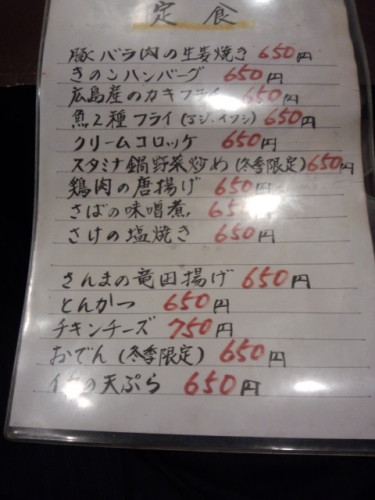 定食
豚バラ肉の生姜焼き 650円
きのこハンバーグ 650円
広島産のカキフライ 650円
魚2種フライ(アジ、イワシ) 650円
クリームコロッケ 650円
スタミナ鍋野菜炒め(冬季限定) 650円
鶏肉の唐揚げ 650円
さばの味噌煮 650円
さけの塩焼き 650円
さんまの竜田揚げ 650円
とんかつ 650円
チキンチーズ 750円
おでん(冬季限定) 650円
の天ぷら 650円